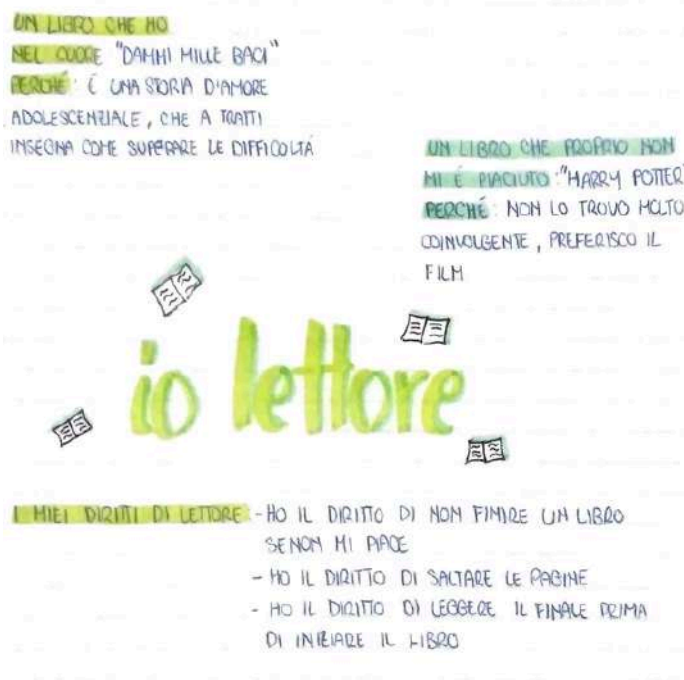 UN LIBRO CHE HO
NEL CUORE "DAMMI MILLE BACI"
PERCHÉ: É UNA STORIA D'AMORE
ADOLESCENZIALE, CHE A TRATTI
INSEGNA COME SUPERARE LE DIFFICOLTÁ
UN LIBRO CHE PROPRIO NON
MI É PIACIUTO: "HARRY POTTER"
PERCHÉ: NON LO TROVO MOLTO
COINVOLGENTE, PREFERISCO IL
FILM
io lettore
I MIEI DIRITTI DI LETTORE - HO IL DIRITTO DI NON FINIRE UN LIBRO
SE NON MI PIACE
- HO IL DIRITTO DI SALTARE LE PAGINE
- HO IL DIRITTO DI LEGGERE IL FINALE PRIMA
DI INIZIARE IL LIBRO